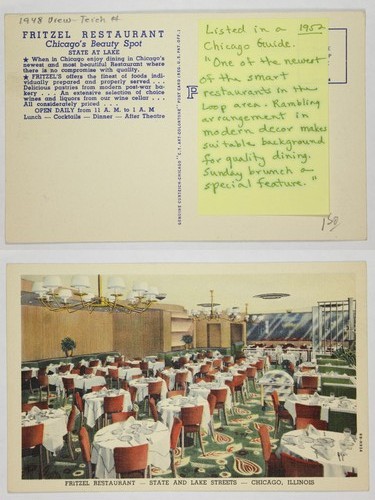 1948 Drew-Teich
FRITZEL RESTAURANT
Chicago's Beauty Spot
STATE AT LAKE
★ When in Chicago enjoy dining in Chicago's
newest and most beautiful Restaurant where
there is no compromise with quality.
★ FRITZEL'S offers the finest of foods indi-
vidually prepared and properly served . . .
Delicious pastries from modern post-war ba-
kery . . . An extensive selection of choice
wines and liquors from our wine cellar . . .
All considerately priced . . .
OPEN DAILY from 11 A. M. to 1 A. M
Lunch — Cocktails — Dinner — After Theatre
P
Listed in a 1952
Chicago Guide.
"One of the newest
of the smart
restaurants in the
Loop area. Rambling
arrangement in
modern decor makes
suitable background
for quality dining.
Sunday brunch a
special feature."
FRITZEL RESTAURANT — STATE AND LAKE STREETS — CHICAGO, ILLINOIS